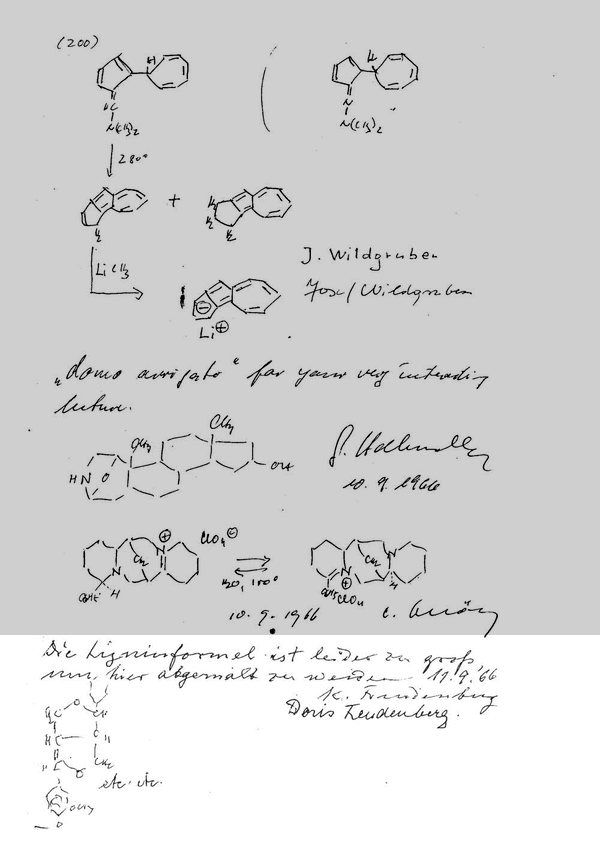 (200)
H
H
HC
N
N(CH3)2
N
N(CH3)2
280°
+
H2
H2
H2
H2
LiCH3
J. Wildgruber
Josef Wildgruber
⊖
Li⊕
„domo arrigato“ for your very interesting
lecture.
CH3
CH3
HN
O
OH
10.9.1966
⊕
N
ClO4⊖
CH2
N
H
H2O, 100°
N
CH2
N⊕
H
ClO4
10.9.1966
Die Ligninformel ist leider zu groß
um hier abgemalt zu werden 11.9.'66
K. Freudenberg
Doris Freudenberg.
H2C
O
CH
HC
CH
H
CH2
O
etc. etc.
OCH3
O